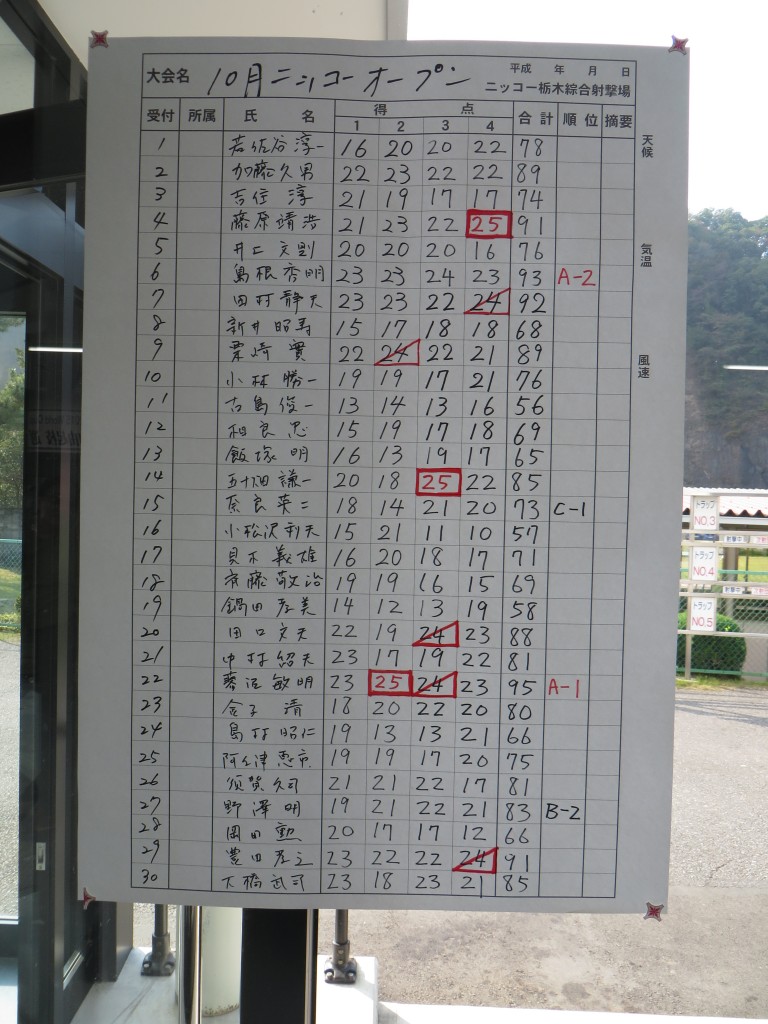 大会名 10月ニッコーオープン 平成 年 月 日
ニッコー栃木綜合射撃場
受付 所属 氏 名 得 点 合計 順位 摘要
1 2 3 4
天候
気温
風速
1 若佐谷淳一 16 20 20 22 78
2 加藤久男 22 23 22 22 89
3 吉住 淳 21 19 17 17 74
4 藤原靖浩 21 23 22 25 91
5 井上文 20 20 20 16 76
6 島根秀明 23 23 24 23 93 A-2
7 田村静夫 23 23 22 24 92
8 新井昭寿 15 17 18 18 68
9 栗崎 實 22 24 22 21 89
10 小林勝一 19 19 17 21 76
11 古島俊一 13 14 13 16 56
12 相良 忠 15 19 17 18 69
13 飯塚 明 16 13 19 17 65
14 五十畑謙一 20 18 25 22 85
15 奈良英二 18 14 21 20 73 C-1
16 小松沢利夫 15 21 11 10 57
17 義雄 16 20 18 17 71
18 斉藤敬治 19 19 16 15 69
19 鍋田 美 14 12 13 19 58
20 田口文夫 22 19 24 23 88
21 中村紹夫 23 17 19 22 81
22 敏明 23 25 24 23 95 A-1
23 金子 清 18 20 22 20 80
24 島村昭仁 19 13 13 21 66
25 阿久津 19 19 17 20 75
26 須賀久司 21 21 22 17 81
27 野澤 明 19 21 22 21 83 B-2
28 岡田 勲 20 17 17 12 66
29 豊田 23 22 22 24 91
30 大橋武司 23 18 23 21 85
トラップ
NO.3
トラップ
NO.4
トラップ
NO.5